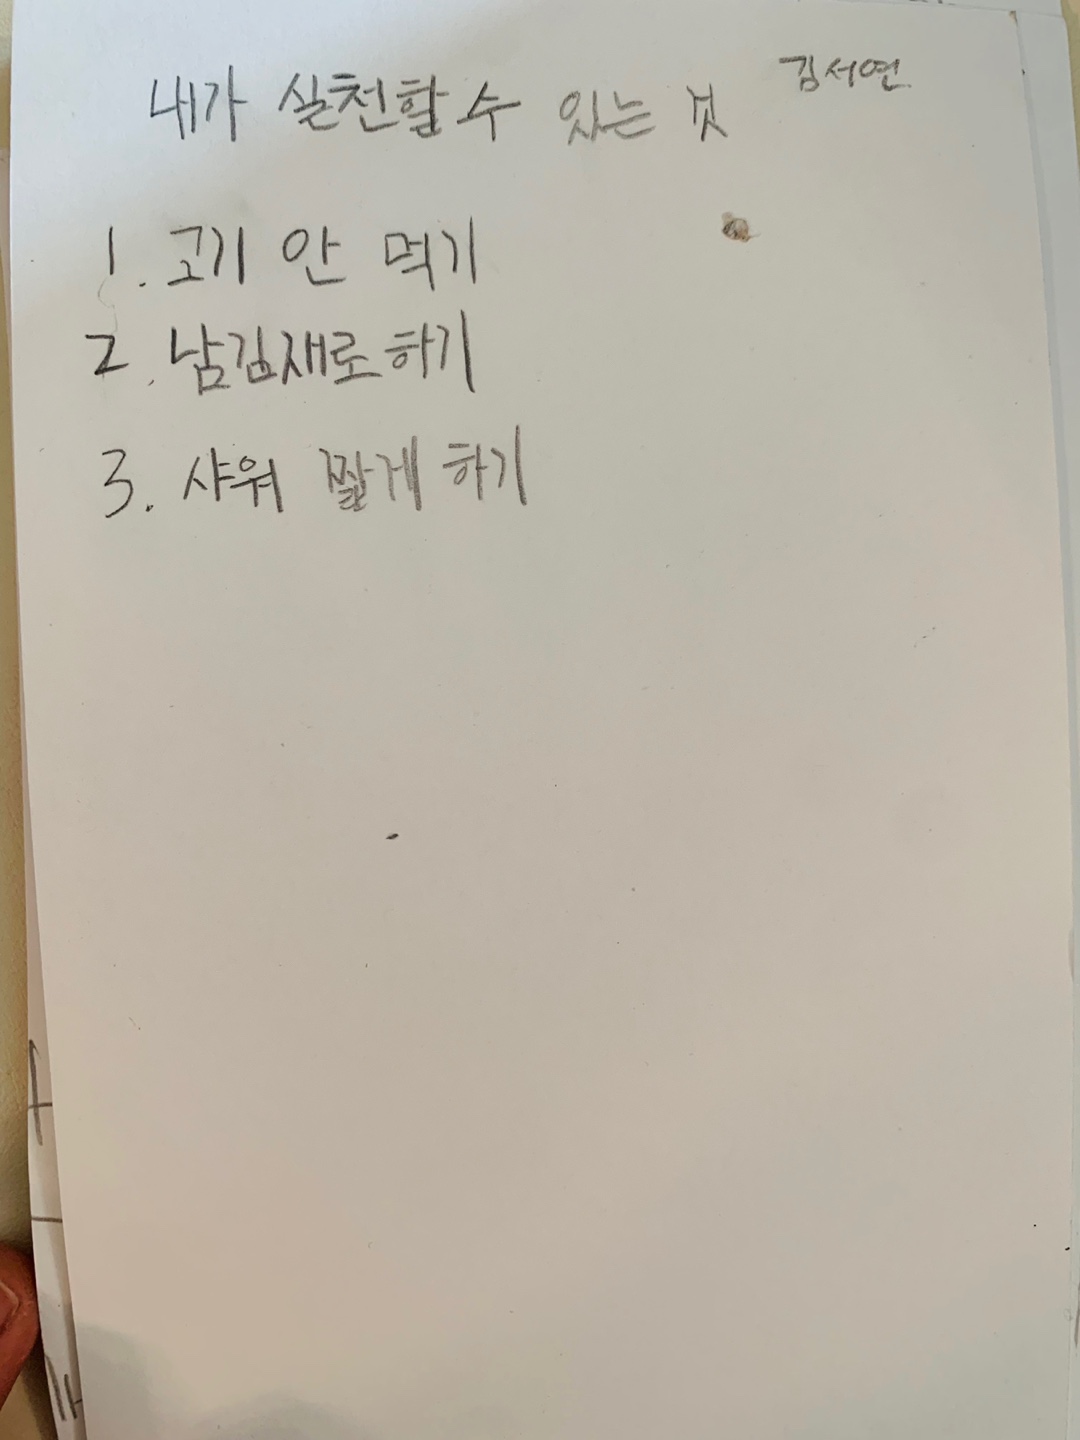 내가 실천할 수 있는 것 김서연
1. 고기 안 먹기
2. 남김재로하기
3. 샤워 짧게 하기